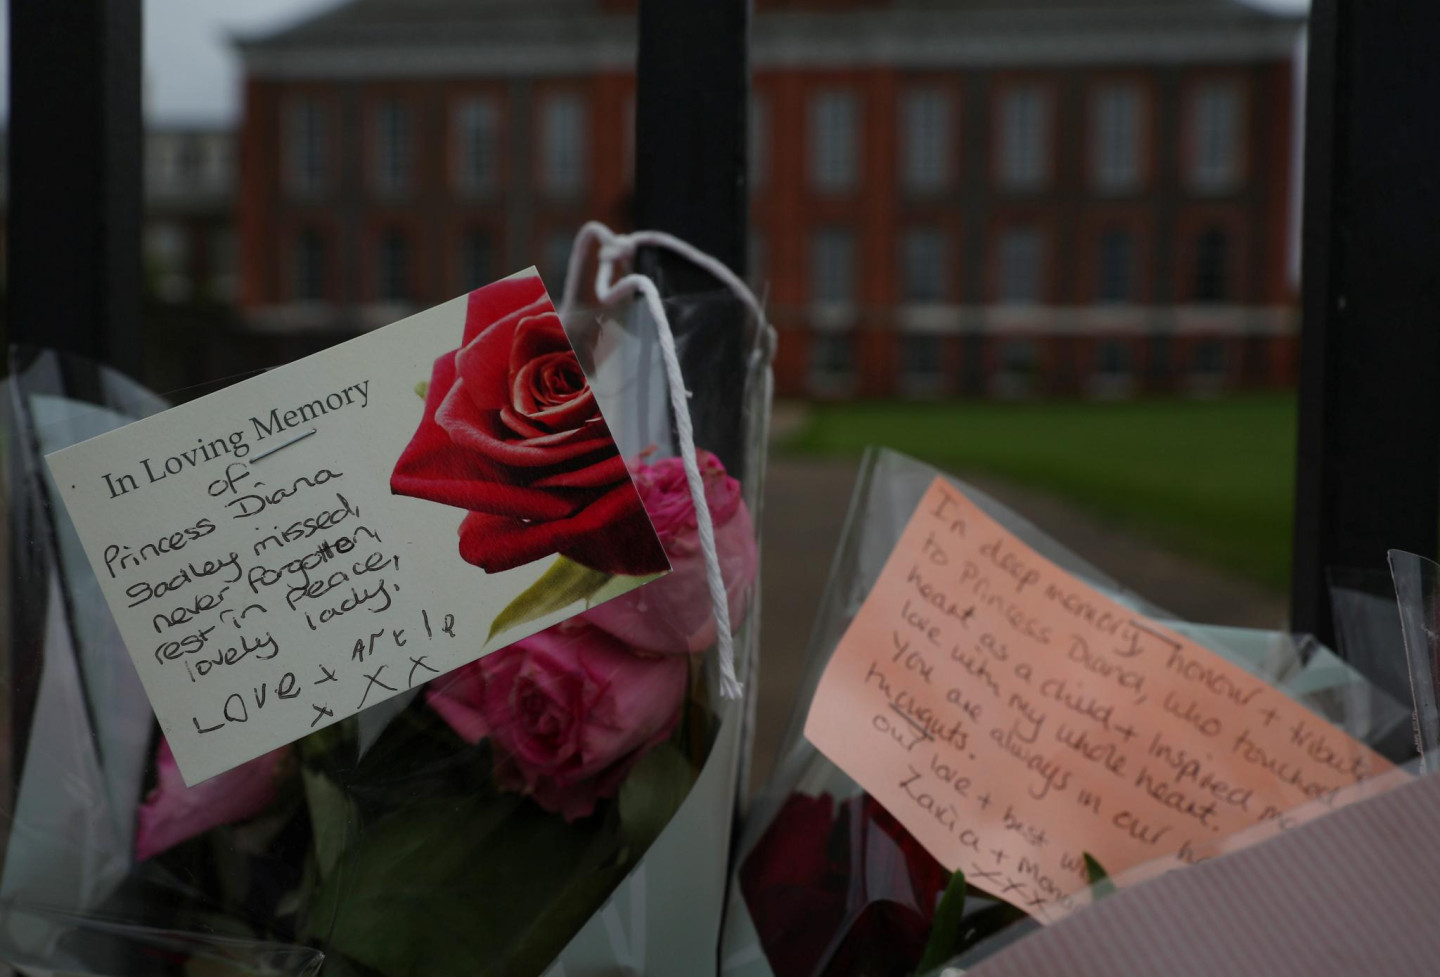 In Loving Memory
of
Princess Diana
Sadley missed,
never forgotten,
rest in peace,
lovely lady.
LOVE + ARtIe
x X X
In deep memory, honour + tribute
to Princess Diana, who touched
heart as a child + inspired
love with my whole heart.
You are always in our
thougts.
Our love + best
Zarka +
xxx